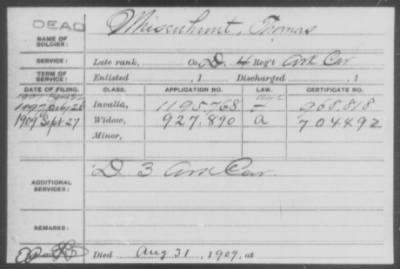 DEAD
NAME OF SOLDIER:
Misenhunt, Thomas
SERVICE:
Late rank, Co. D. 4 Reg't Ark Cav
TERM OF SERVICE:
Enlisted , 1 Discharged , 1
DATE OF FILING. CLASS. APPLICATION NO. LAW. CERTIFICATE NO.
1897 July 26 Invalid, 1195.768 — 968.818
1907 Sept 27 Widow, 927.890 a 704892
Minor,
ADDITIONAL SERVICES:
D 3 Ark Cav.
REMARKS:
Died Aug 31, 1907, at